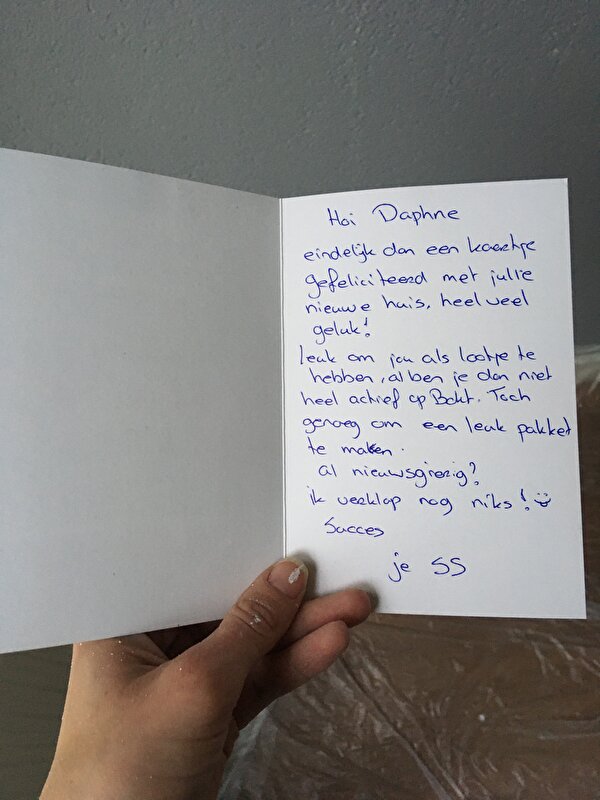 Hoi Daphne
eindelijk dan een kaartje
gefeliciteerd met jullie
nieuwe huis, heel veel
geluk!
leuk om jou als lootje te
hebben, al ben je dan niet
heel actief op Bokt. Toch
genoeg om een leuk pakket
te maken.
al nieuwsgierig?
ik verklap nog niks! :)
Succes
je SS